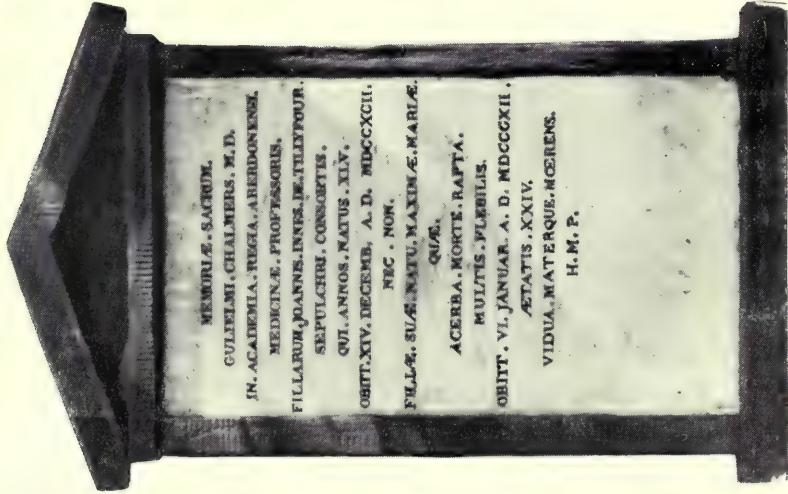 MEMORIÆ. SACRUM.
GULIELMI. CHALMERS. M.D.
IN. ACADEMIA. REGIA. ABERDONENSI.
MEDICINÆ. PROFESSORIS.
FILLARUM. JOANNIS. INNES. DE. TILLYFOUR.
SEPULCHRI. CONSORTIS.
QUI. ANNOS. NATUS. XLV.
OBIIT. XIV. DECEMB. A. D. MDCCXCII.
NEC. NON.
FILLÆ. SUÆ. NATU. MAXIMÆ. MARIÆ.
QUÆ.
ACERBA. MORTE. RAPTA.
MULTIS. FLEBILIS.
OBIIT. VI. JANUAR. A. D. MDCCCXII.
ÆTATIS. XXIV.
VIDUA. MATERQUE. MŒRENS.
H. M. P.